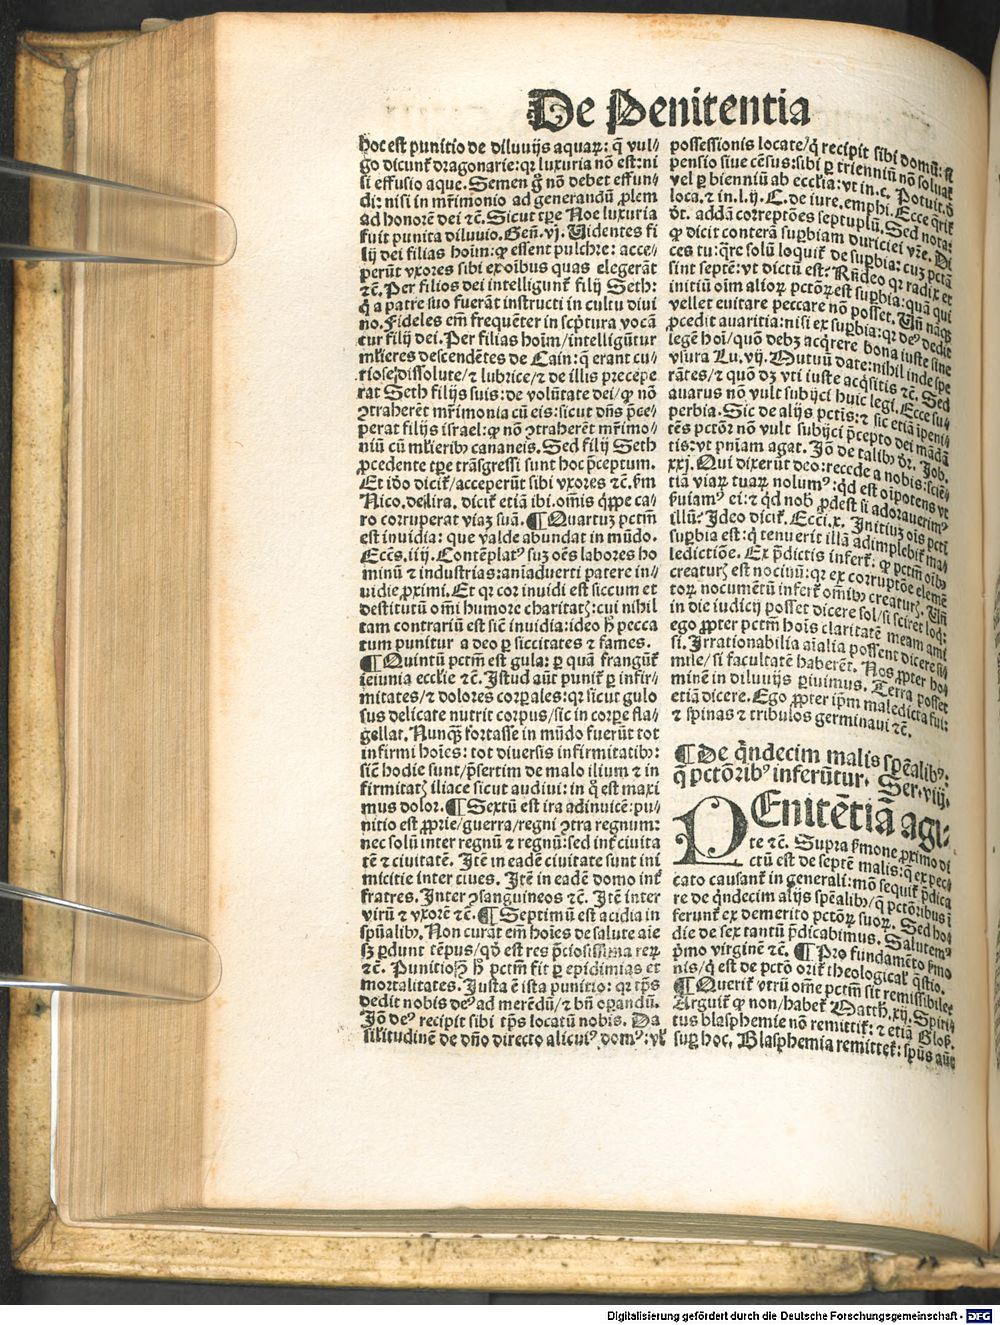 De Penitentia
hoc est punitio de diluuijs aquaꝝ: q̄ vul⸗
go dicunt̄ dragonarie: qꝛ luxuria nō est: ni
si effusio aque. Semen g̊ nō debet effun⸗
di: nisi in mr̄imonio ad generandū ꝓlem
ad honorē dei ⁊c̄. Sicut tꝑe Noe luxuria
fuit punita diluuio. Geñ. vj. Videntes fi
lij dei filias hoīm: ꝙ essent pulchre: acce⸗
perūt vxores sibi ex oībus quas elegerāt
⁊c̄. Per filios dei intelligunt̄ filij Seth:
q̄ a patre suo fuerāt instructi in cultu diui
no. Fideles em̄ frequēter in scpͥtura vocā
tur filij dei. Per filias hoīm/intelligūtur
mlieres descendētes de Cain: q̄ erant cu⸗
riose/dissolute/⁊ lubrice/⁊ de illis precepe
rat Seth filijs suis: de volūtate dei/ꝙ nō
ꝯtraherēt mr̄imonia cū eis: sicut dn̄s p̄ce⸗
perat filijs israel: ꝙ nō ꝯtraherēt mr̄imo⸗
niū cū mlierib⁹ cananeis. Sed filij Seth
ꝓcedente tꝑe trāsgressi sunt hoc p̄ceptum.
Et iō dicit̄/acceperūt sibi vxores ⁊c̄. ẜm
Nico. de lira. dicit̄ etiā ibi. om̄is qͥppe ca⸗
ro corruperat viaꝫ suā. ¶ Quartuꝫ pctm̄
est inuidia: que valde abundat in mūdo.
Eccͣs. iiij. Contēplat⁹ suꝫ oēs labores ho
minū ⁊ industrias: aīaduerti patere in⸗
uidie ꝓximi. Et qꝛ cor inuidi est siccum et
destitutū om̄i humore charitat̄: cui nihil
tam contrariū est sic̄ inuidia: ideo h̄ pecca
tum punitur a deo ꝑ siccitates ⁊ fames.
¶ Quintū pctm̄ est gula: ꝑ quā frangūt̄
ieiunia ecclie ⁊c̄. Istud aūt punit̄ ꝑ infir⸗
mitates/⁊ dolores corꝑales: qꝛ sicut gulo
sus delicate nutrit corpus/sic in corꝑe fla⸗
gellat̄. Nunqͣꝫ fortasse in mūdo fuerūt tot
infirmi hoīes: tot diuersis infirmitatib⁹:
sic̄ hodie sunt/p̄sertim de malo ilium ⁊ in
firmitat̄ iliace sicut audiui: in q̊ est maxi
mus dolor. ¶ Sextū est ira adinuicē: pu⸗
nitio est ꝓprie/guerra/regni ꝯtra regnum:
nec solū inter regnū ⁊ regnū: sed int̄ ciuita
tē ⁊ ciuitatē. Itē in eadē ciuitate sunt ini
micitie inter ciues. Itē in eadē domo int̄
fratres. Inter ꝯsanguineos ⁊c̄. Itē inter
virū ⁊ vxorē ⁊c̄. ¶ Septimū est acidia in
sp̄ualib⁹. Non curāt em̄ hoīes de salute aīe
sꝫ ꝑdunt tēpus/qd̄ est res p̄ciosissima reꝝ
⁊c̄. Punitio h̄ pctm̄ fit ꝑ epidimias et
mortalitates. Justa ē ista punitio: qꝛ tp̄s
dedit nobis de⁹ ad merēdū/⁊ bn̄ oꝑandū.
Iō de⁹ recipit sibi tp̄s locatū nobis. Da
silitudinē de dn̄o directo alicui⁹ dom⁹: vl̄
possessionis locate/q̄ recipit sibi domū: si
pensio siue cēsus: sibi ꝑ trienniū nō soluat̄
vel ꝑ bienniū ab ecclia: vt in. c. Potuit. ð
loca. ⁊ in. l. ij. C. de iure. emphi. Ecce qͣrit̄
ðt. addā correptōes septuplū. Sed nota:
ꝙ dicit conterā suꝑbiam duriciei vr̄e. Di
ces tu: qͣre solū loquit̄ de suꝑbia: cuꝫ pctā
sint septē: vt dictū est? Rn̄deo qꝛ radix et
initiū oīm alioꝝ pctōꝝ est suꝑbia: quā qui
vellet euitare peccare nō posset. Vn̄ naqꝫ
ꝓcedit auaritia: nisi ex suꝑbia: qꝛ de⁹ dedit
legē hoī/quō debꝫ acqͥrere bona iuste sine
vsura Lu. vj. Mutuū date: nihil inde spe
rātes/⁊ quō dꝫ vti iuste acqͥsitis ⁊c̄. Sed
auarus nō vult subijci huic legi. Ecce su⸗
perbia. Sic de alijs pctīs: ⁊ sic etiā ipeni⸗
tēs pctōꝝ nō vult subijci p̄cepto dei mādā
tis: vt pn̄iam agat. Iō de talib⁹ ðr. Job.
xxj. Qui dixerūt deo: recede a nobis: sciē⸗
tiā viaꝝ tuaꝝ nolum⁹: qͥd est oīpotens vt
ẜuiam⁹ ei: ⁊ qͥd nob̄ ꝓdest si adorauerim⁹
illū? Ideo dicit̄. Ecci. x. Initiuꝫ oīs pcti
suꝑbia est: q̄ tenuerit illā adimplebit̄ ma⸗
ledictiōe. Ex p̄dictis infert̄: ꝙ pctm̄ oīb⁹
creaturꝭ est nociuū: qꝛ ex corruptōe elemē
toꝝ nocumētū infert̄ om̄ib⁹ creaturꝭ. Vn̄
in die iudicij posset dicere sol/si sciret loqͥ:
ego ꝓpter pctm̄ hoīs claritatē meam ami
si. Irrationabilia aīalia possent dicere si⸗
mile/si facultatē haberēt. Nos ꝓpter ho⸗
minē in diluuijs ꝑiuimus. Terra posset
etiā dicere. Ego ꝓpter ip̄m maledicta fui:
⁊ spinas ⁊ tribulos germinaui ⁊c̄.
¶ De qͥndecim malis sp̄ealib⁹:
q̄ pctōrib⁹ inferūtur. Ser. vij.
PEnitētiā agi⸗
te ⁊c̄. Supra ẜmone ꝓximo di
ctū est de septē malis: q̄ ex pec⸗
cato causant̄ in generali: mō sequit̄ p̄dica
re de qͥndecim alijs sp̄ealib⁹/q̄ pctōribus ī
ferunt̄ ex demerito pctōꝝ suoꝝ. Sed ho⸗
die de sex tantū p̄dicabimus. Salutem⁹
pͥmo virginē ⁊c̄. ¶ Pro fundamēto ẜmo
nis/q̄ est de pctō orit̄ theologicaꝉ q̄stio.
¶ Querit̄ vtrū om̄e pctm̄ sit remissibile?
Arguit̄ ꝙ non/habet̄ Matth. xij. Spiri⸗
tus blasphemie nō remittit̄: ⁊ etiā Glos.
suꝑ hoc, Blasphemia remittet̄: sp̄us aūt
Digitalisierung gefördert durch die Deutsche Forschungsgemeinschaft - DFG